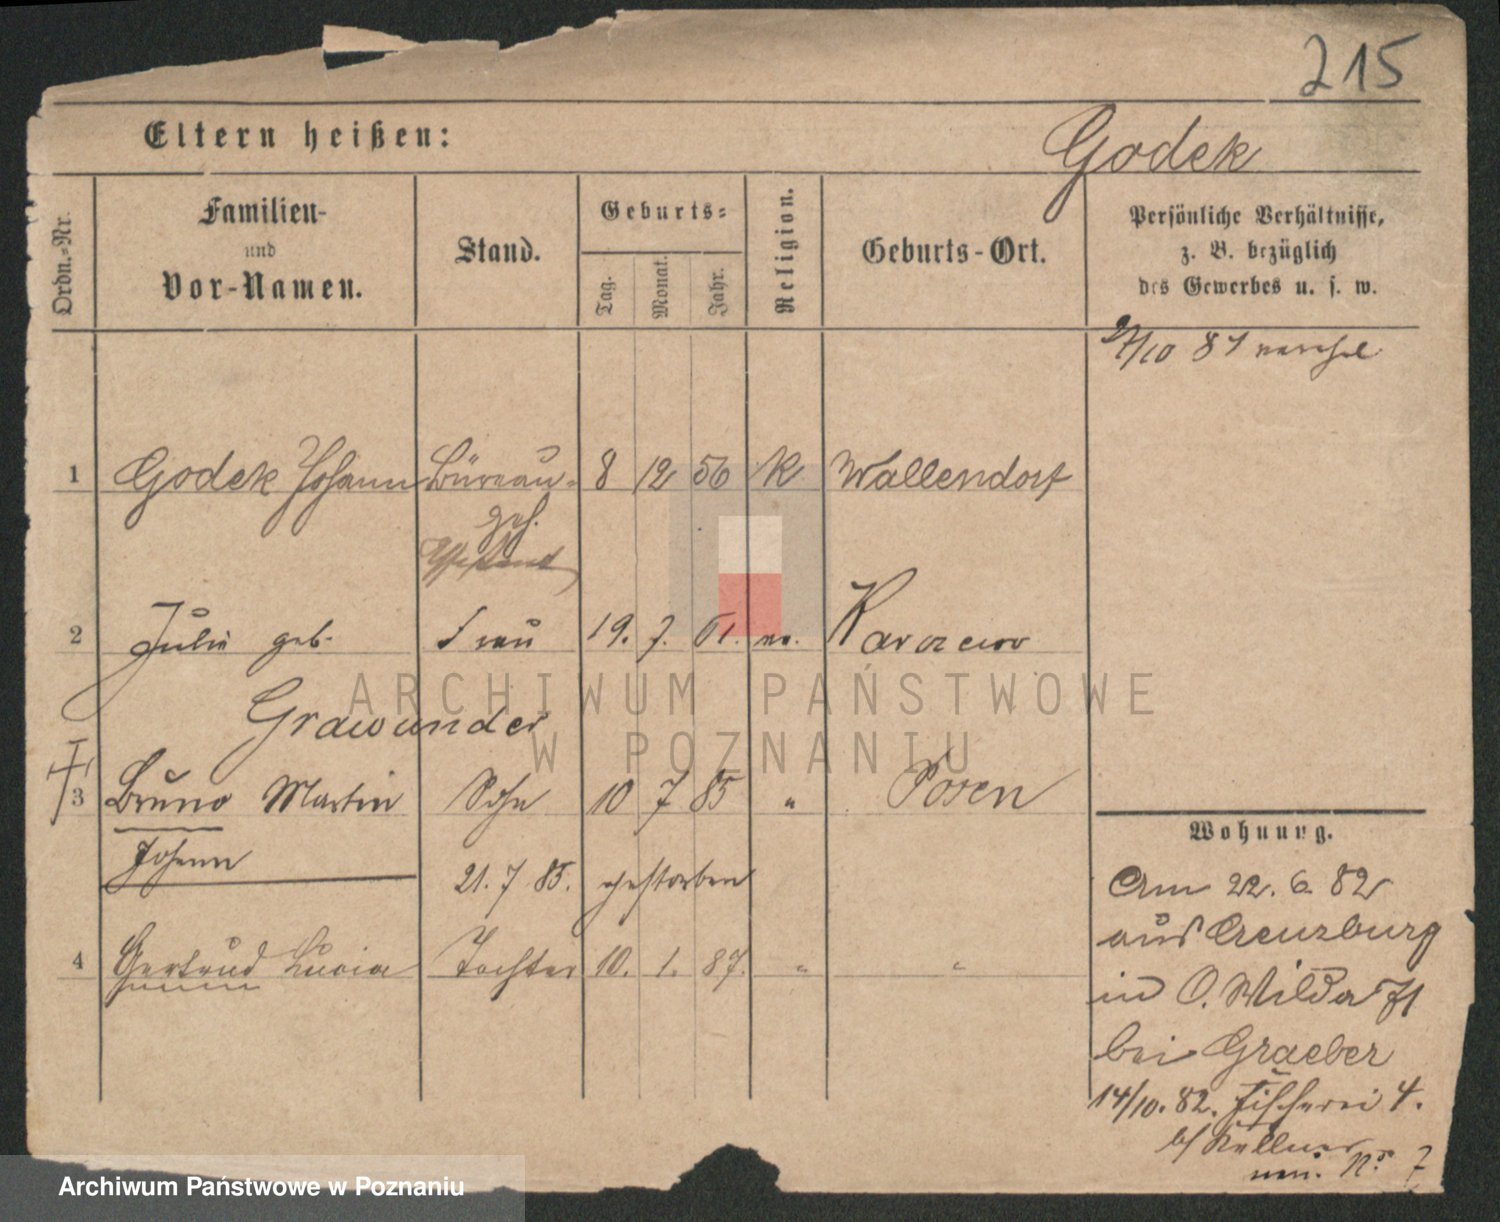 215
Eltern heißen:
Godek
Ordn.-Nr.
Familien-
und
Vor-Namen.
Stand.
Geburts-
Tag.
Monat.
Jahr.
Religion.
Geburts-Ort.
Persönliche Verhältnisse,
z. B. bezüglich
des Gewerbes u. s. w.
/10 81
1 Godek Johann Büreau- 8 12 56 K Wallendorf
geh.
2 Julie geb. Frau 19. 7. 61.
Grawunder
3 Bruno Martin Sohn 10 7 85 " Posen
Johann
21. 7 85. gestorben
4 Gertrud Lucia Tochter 10. 1. 87. " "
Wohnung.
Am 22. 6. 82
aus Creuzburg
in O. Wilda 71
bei Graeber
14/10. 82. Fischerei 4.
b/ Kellner
No. 7
ARCHIWUM PAŃSTWOWE
W POZNANIU
Archiwum Państwowe w Poznaniu